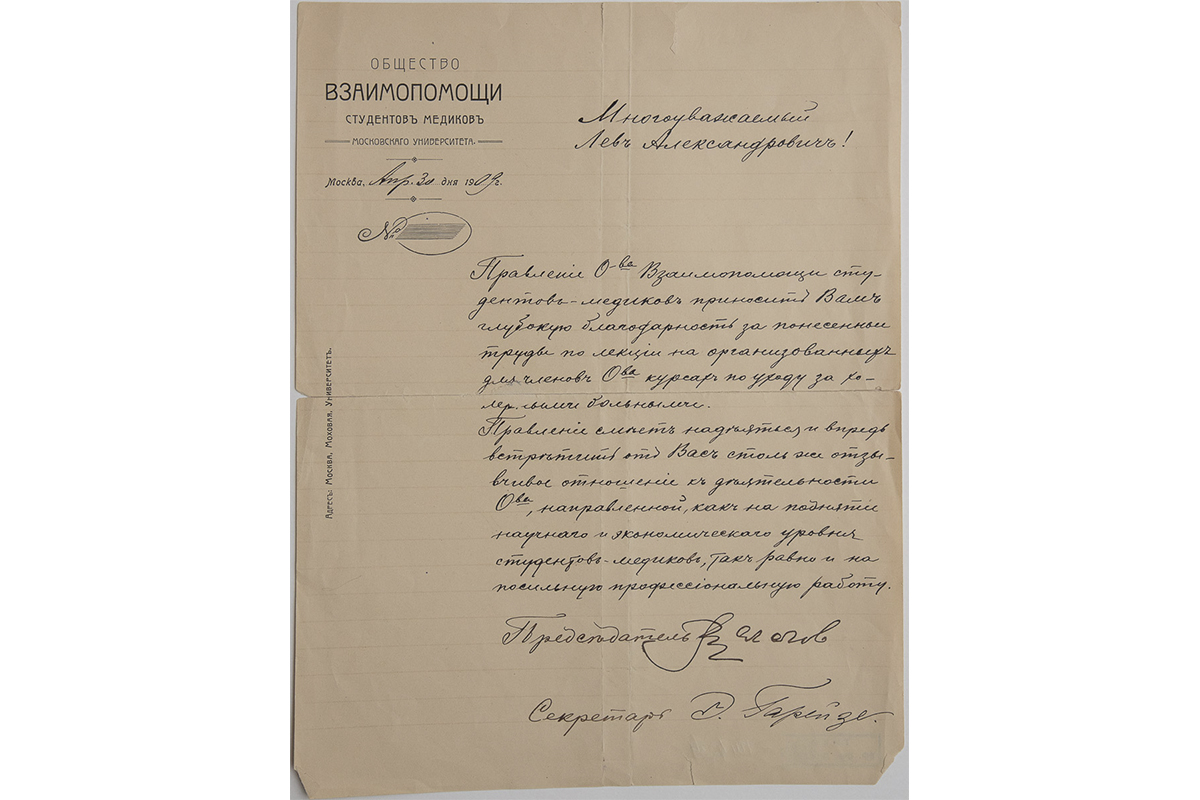 ОБЩЕСТВО
ВЗАИМОПОМОЩИ
СТУДЕНТОВЪ МЕДИКОВЪ
МОСКОВСКАГО УНИВЕРСИТЕТА.
Москва, Апр. 30 дня 1909 г.
№
Адресъ: Москва, Моховая, Университетъ.
Многоуважаемый
Левъ Александровичъ!
Правленіе О-ва Взаимопомощи сту-
дентовъ-медиковъ приноситъ Вамъ
глубокую благодарность за понесенные
труды по лекціи на организованныхъ
для членовъ О-ва курсахъ по уходу за хо-
лерными больными.
Правленіе смѣетъ надѣяться и впредь
встрѣтить отъ Васъ столь же отзы-
вчивое отношеніе къ дѣятельности
О-ва, направленной, какъ на поднятіе
научнаго и экономическаго уровня
студентовъ-медиковъ, такъ равно и на
посильную профессіональную работу.
Предсѣдатель
Секретарь